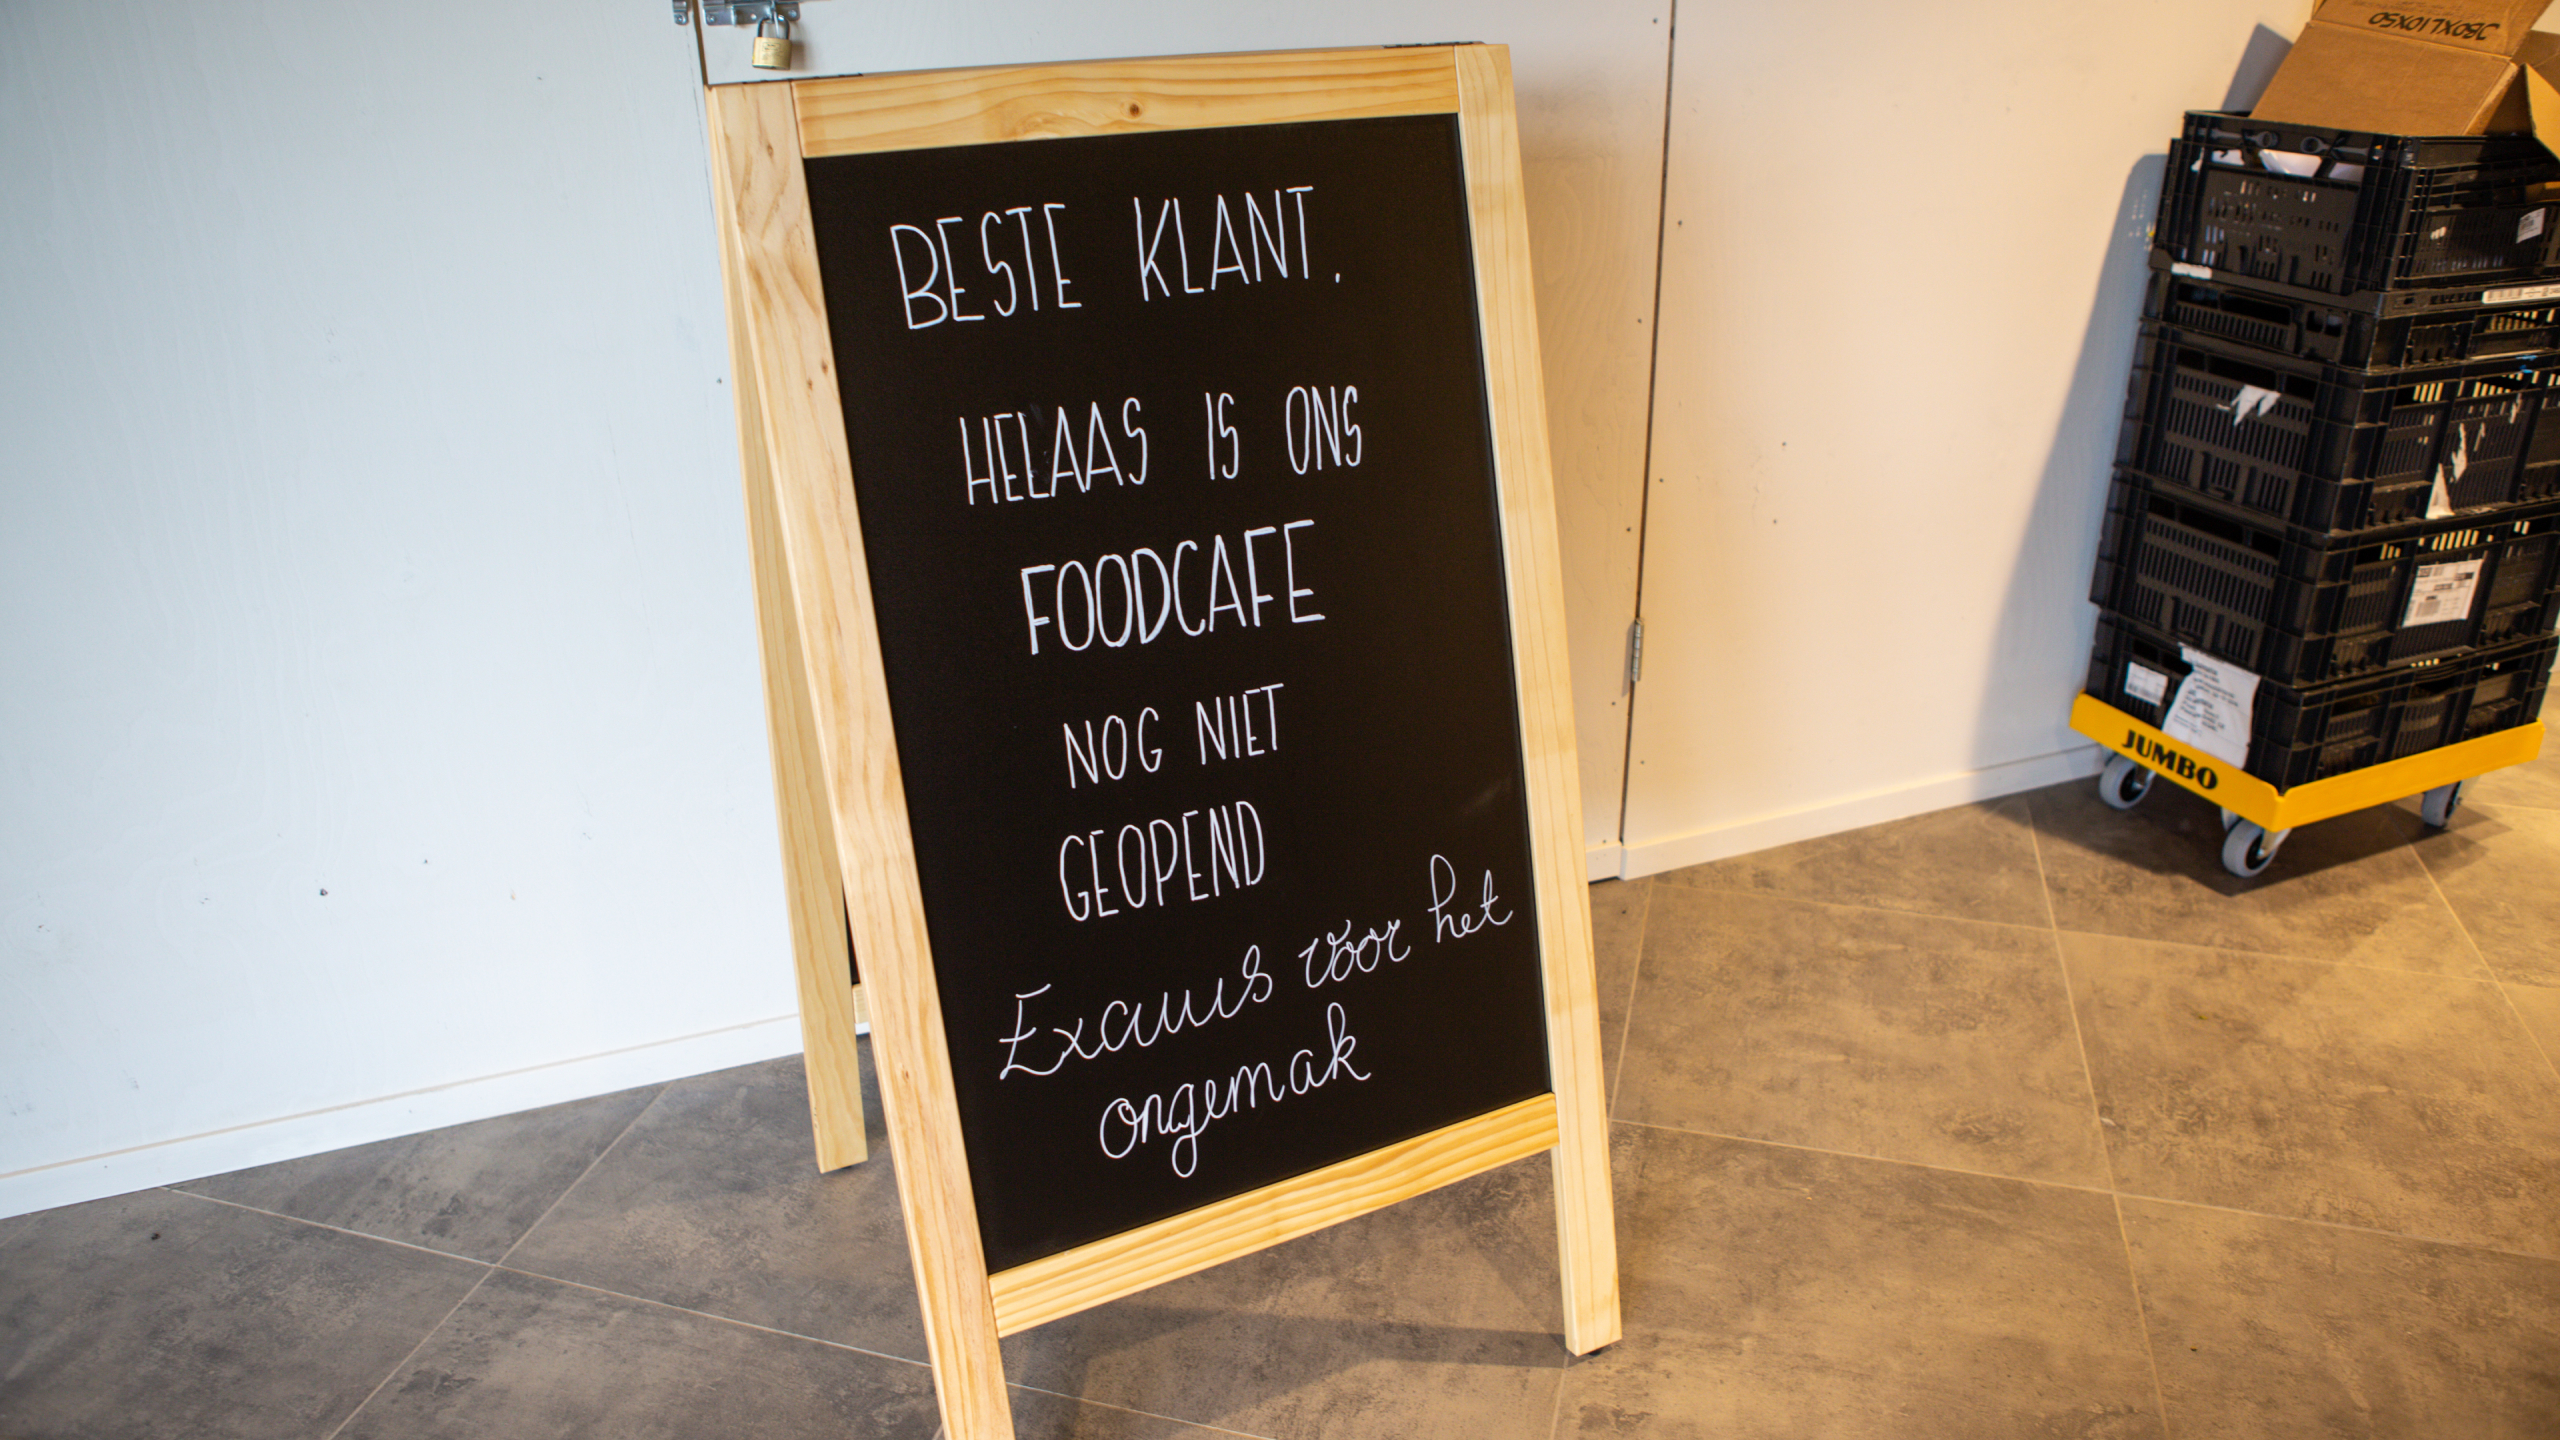 BESTE KLANT.
HELAAS IS ONS
FOODCAFE
NOG NIET
GEOPEND
Excuus voor het
ongemak
JUMBO